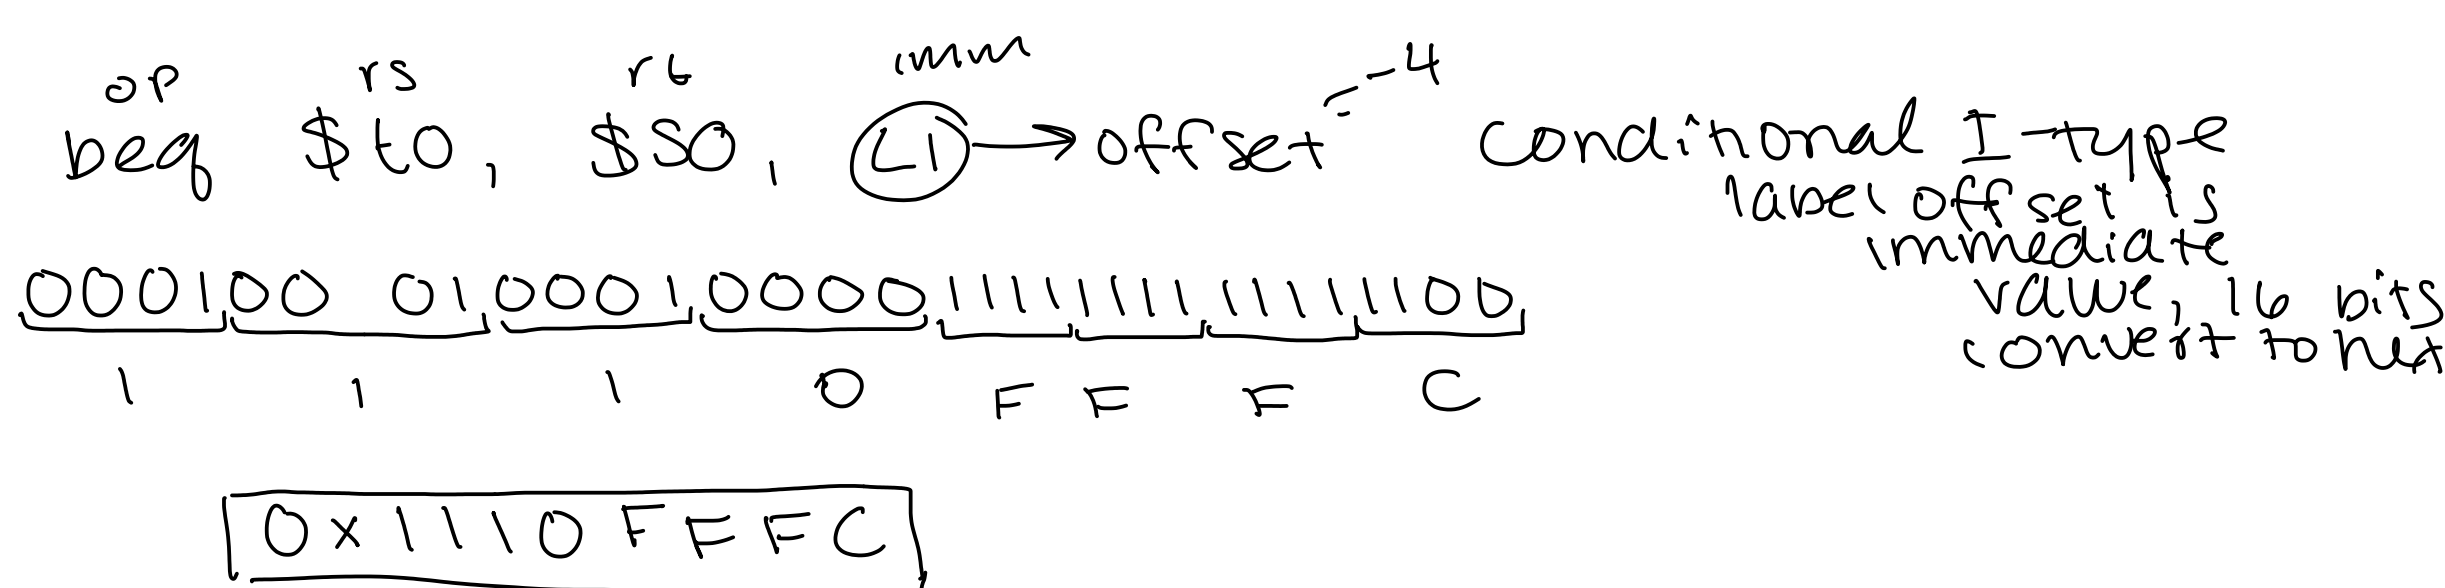 op rs rt imm
beq $t0, $s0, L1 → offset = -4
conditional I-type
label offset is
immediate
value, 16 bits
convert to hex
000100 01000 10000 1111111111111100
1 1 1 0 F F F C
0x1110FFFC